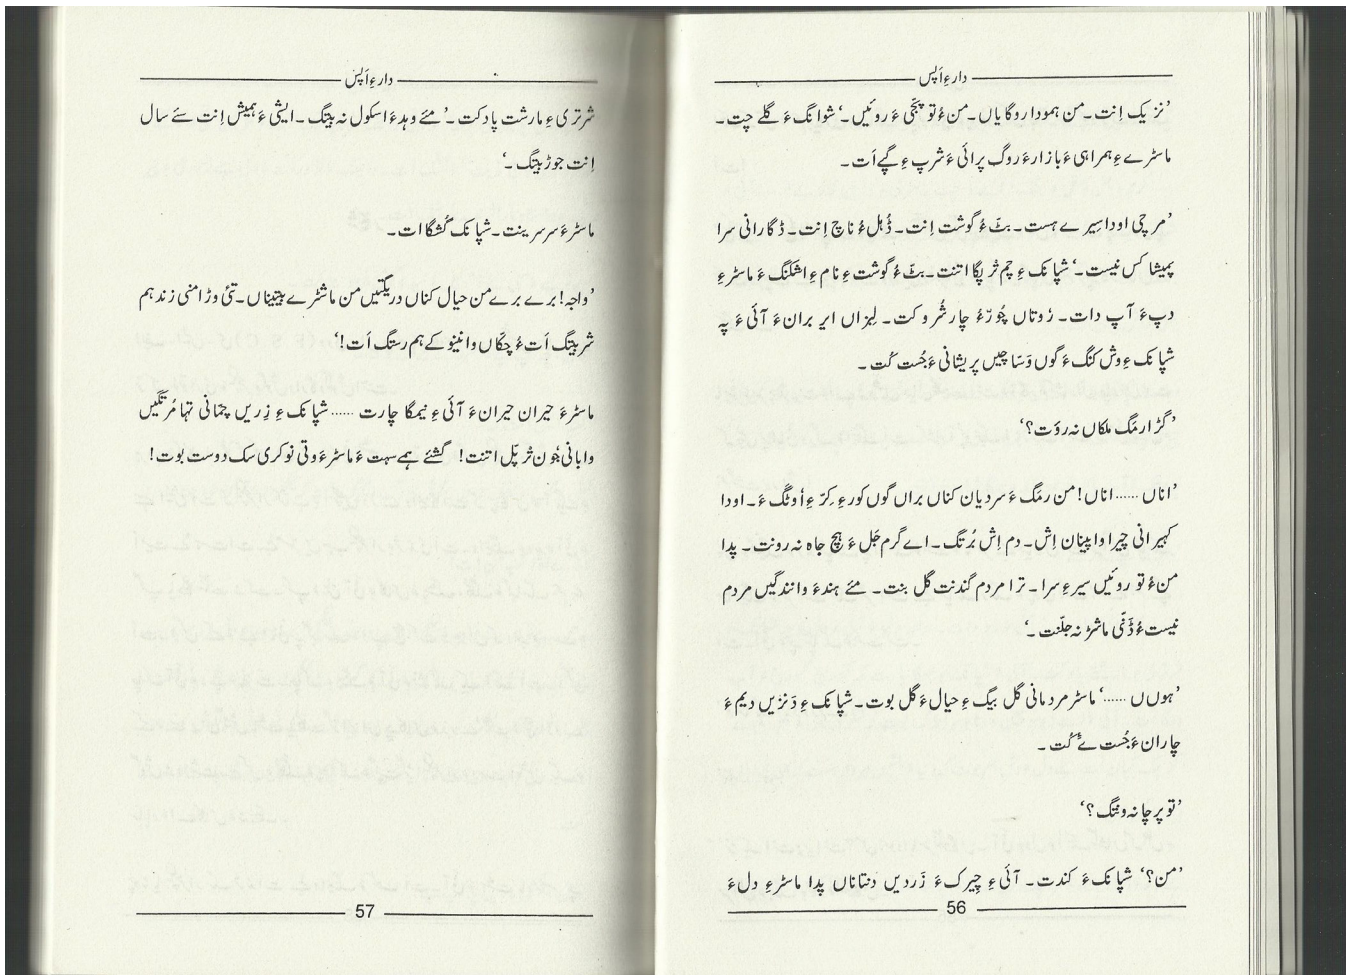 دار ءِ اَپس
’نزیک اِنت۔ من ہمودا روگایاں۔ من ءُ تو پجّی ءَ روئیں۔‘ شوانگ ءَ گلے جت۔
ماسٹرے ءِ ہمراہی ءَ بازار ءَ روگ پرائی ءَ شرپ ءِ گپے اَت۔
’مرچی اودا سِیرے ہست۔ بٹّ ءُ گوشت اِنت۔ ڈُہل ءُ ناچ اِنت۔ ڈگارانی سرا
پمیشا کس نیست۔‘ شپانک ءِ چم ثرپگا اتنت۔ بٹّ ءُ گوشت ءِ نام ءِ اشکنگ ءَ ماسٹر ءِ
دپ ءَ آپ دات۔ رُوتاں چُورّ ءُ چار شُروکت۔ لِیزاں ایر بران ءَ آئی ءَ پہ
شپانک ءِ وش کنگ ءَ گوں وَسّاچیں پریشانی ءَ جُست کُت۔
’گڑا رمَگ ملکاں نہ رؤت؟‘
’اناں ...... اناں! من رمَگ ءَ سردیان کناں براں گوں کور ءِ کِرّ ءِ اُوتگ ءَ۔ اودا
کہیرانی چیرا واپینان اِش۔ دم اِش بُرتگ۔ اے گرم جَل ءَ ہچ جاہ نہ رونت۔ پدا
من ءُ تو روئیں سیر ءِ سرا۔ ترا مردم گندنت گل بنت۔ مئے ہند ءَ وانندگیں مردم
نیست ءُ ڈَنّی ماشڑ نہ جلّنت۔‘
’ہوں ں ......‘ ماسٹر مردمانی گل بیگ ءِ حیال ءَ گل بوت۔ شپانک ءِ دَنزیں دیم ءَ
چاران ءَ جُستے ئے کُت۔
’تو پرچا نہ ونتگ؟‘
’من؟‘ شپانک ءَ کندت۔ آئی ءِ چیرک ءَ زَردیں دنتاناں پدا ماسٹر ءِ دل ءَ
56
دار ءِ اَپس
شرتری ءِ مارشت پاد کت۔ ’مئے وہد ءَ اسکول نہ بیتگ۔ ایشی ءَ ہمیش اِنت سئے سال
اِنت جوڑ بیتگ۔‘
ماسٹر ءَ سر سرینت۔ شپانک گُشگا ات۔
’واجہ! برے برے من حیال کناں دریگتیں من ماشٹرے بیتیناں۔ تئی وڑا منی زند ہم
شر بیتگ اَت ءُ چکّاں وانینوکے ہم رستگ اَت!‘
ماسٹر ءَ حیران حیران ءَ آئی ءِ نیمگا چارت ...... شپانک ءِ زِریں چمّانی تہا مُرتگیں
وابانی جُون ثرپّل اتنت! گشئے ہمے سہت ءَ ماسٹر ءَ وتی نوکری سک دوست بوت!
57